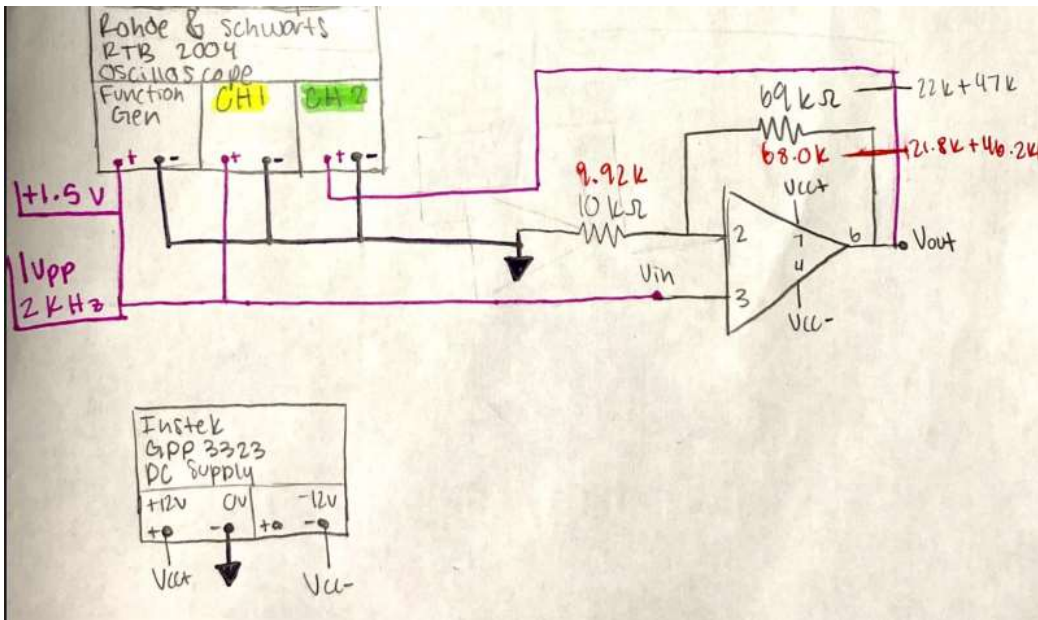 Rohde & Schwarts
RTB 2004
Oscillascope
Function Gen
CH1
CH2
+ - + - + -
1+1.5 V
1Vpp
2KHz
69kΩ
22k+47k
68.0k
21.8k+46.2k
9.92k
10kΩ
Vcc+
2
7
6
Vout
4
Vin
3
Vcc-
Instek
GPP 3323
DC Supply
+12V
0V
-12V
+ - + -
Vcc+
Vcc-